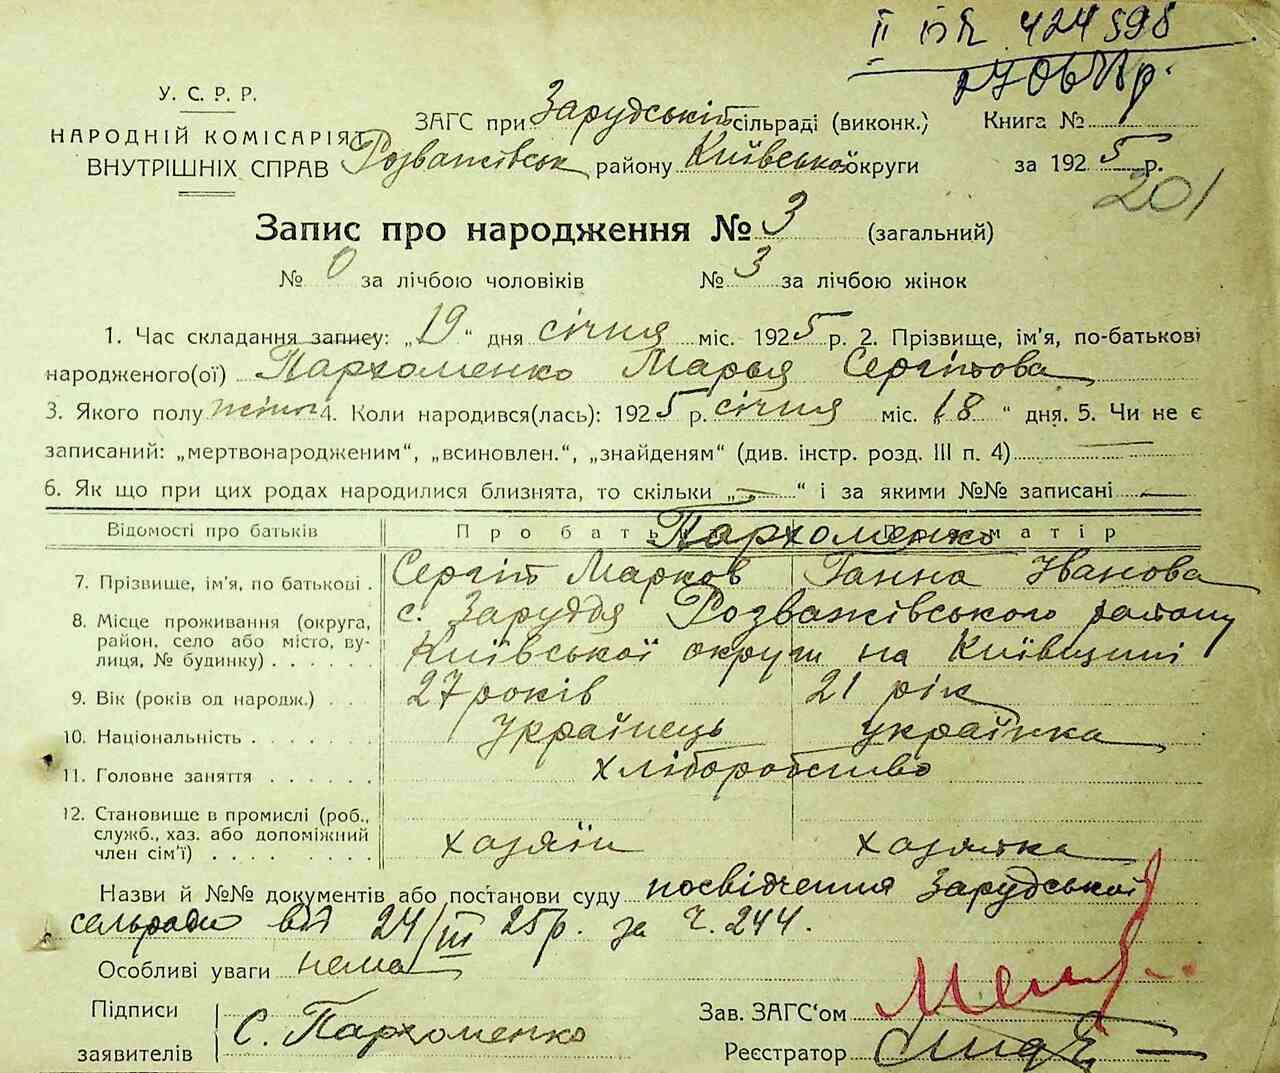 II 424598
У. С. Р. Р.
НАРОДНІЙ КОМІСАРІЯТ
ВНУТРІШНІХ СПРАВ
ЗАГС при Зарудській сільраді (виконк.) Книга №
Розважівськ району Київської округи за 1925 р.
201
Запис про народження № 3 (загальний)
№ 0 за лічбою чоловіків № 3 за лічбою жінок
1. Час складання запису: „19“ дня січня міс. 1925 р. 2. Прізвище, ім'я, по-батькові
народженого(ої) Пархоменко Марья Сергіївова
3. Якого полу жіноч 4. Коли народився(лась): 1925 р. січня міс. „18“ дня. 5. Чи не є
записаний: „мертвонародженим“, „всиновлен.“, „знайденям“ (див. інстр. розд. III п. 4) —
6. Як що при цих родах народилися близнята, то скільки „—“ і за якими №№ записані —
Відомості про батьків Про батька Про матір
Пархоменко
7. Прізвище, ім'я, по батькові . Сергій Марков Ганна Іванова
8. Місце проживання (округа, с. Заруддя Розважівського району
район, село або місто, ву-
лиця, № будинку) . . . . . . Київської округи на Київщині
9. Вік (років од народж.) . . . 27 років 21 рік
10. Національність . . . . . . . Українець українка
11. Головне заняття . . . . . . хліборобство
12. Становище в промислі (роб.,
служб., хаз. або допоміжний
член сім'ї) . . . . . . . . . хазяїн хазяйка
Назви й №№ документів або постанови суду посвідчення Зарудської
сельради від 24/III 25р. за Ч. 244.
Особливі уваги нема
Підписи
заявителів С. Пархоменко
Зав. ЗАГС'ом
Реєстратор